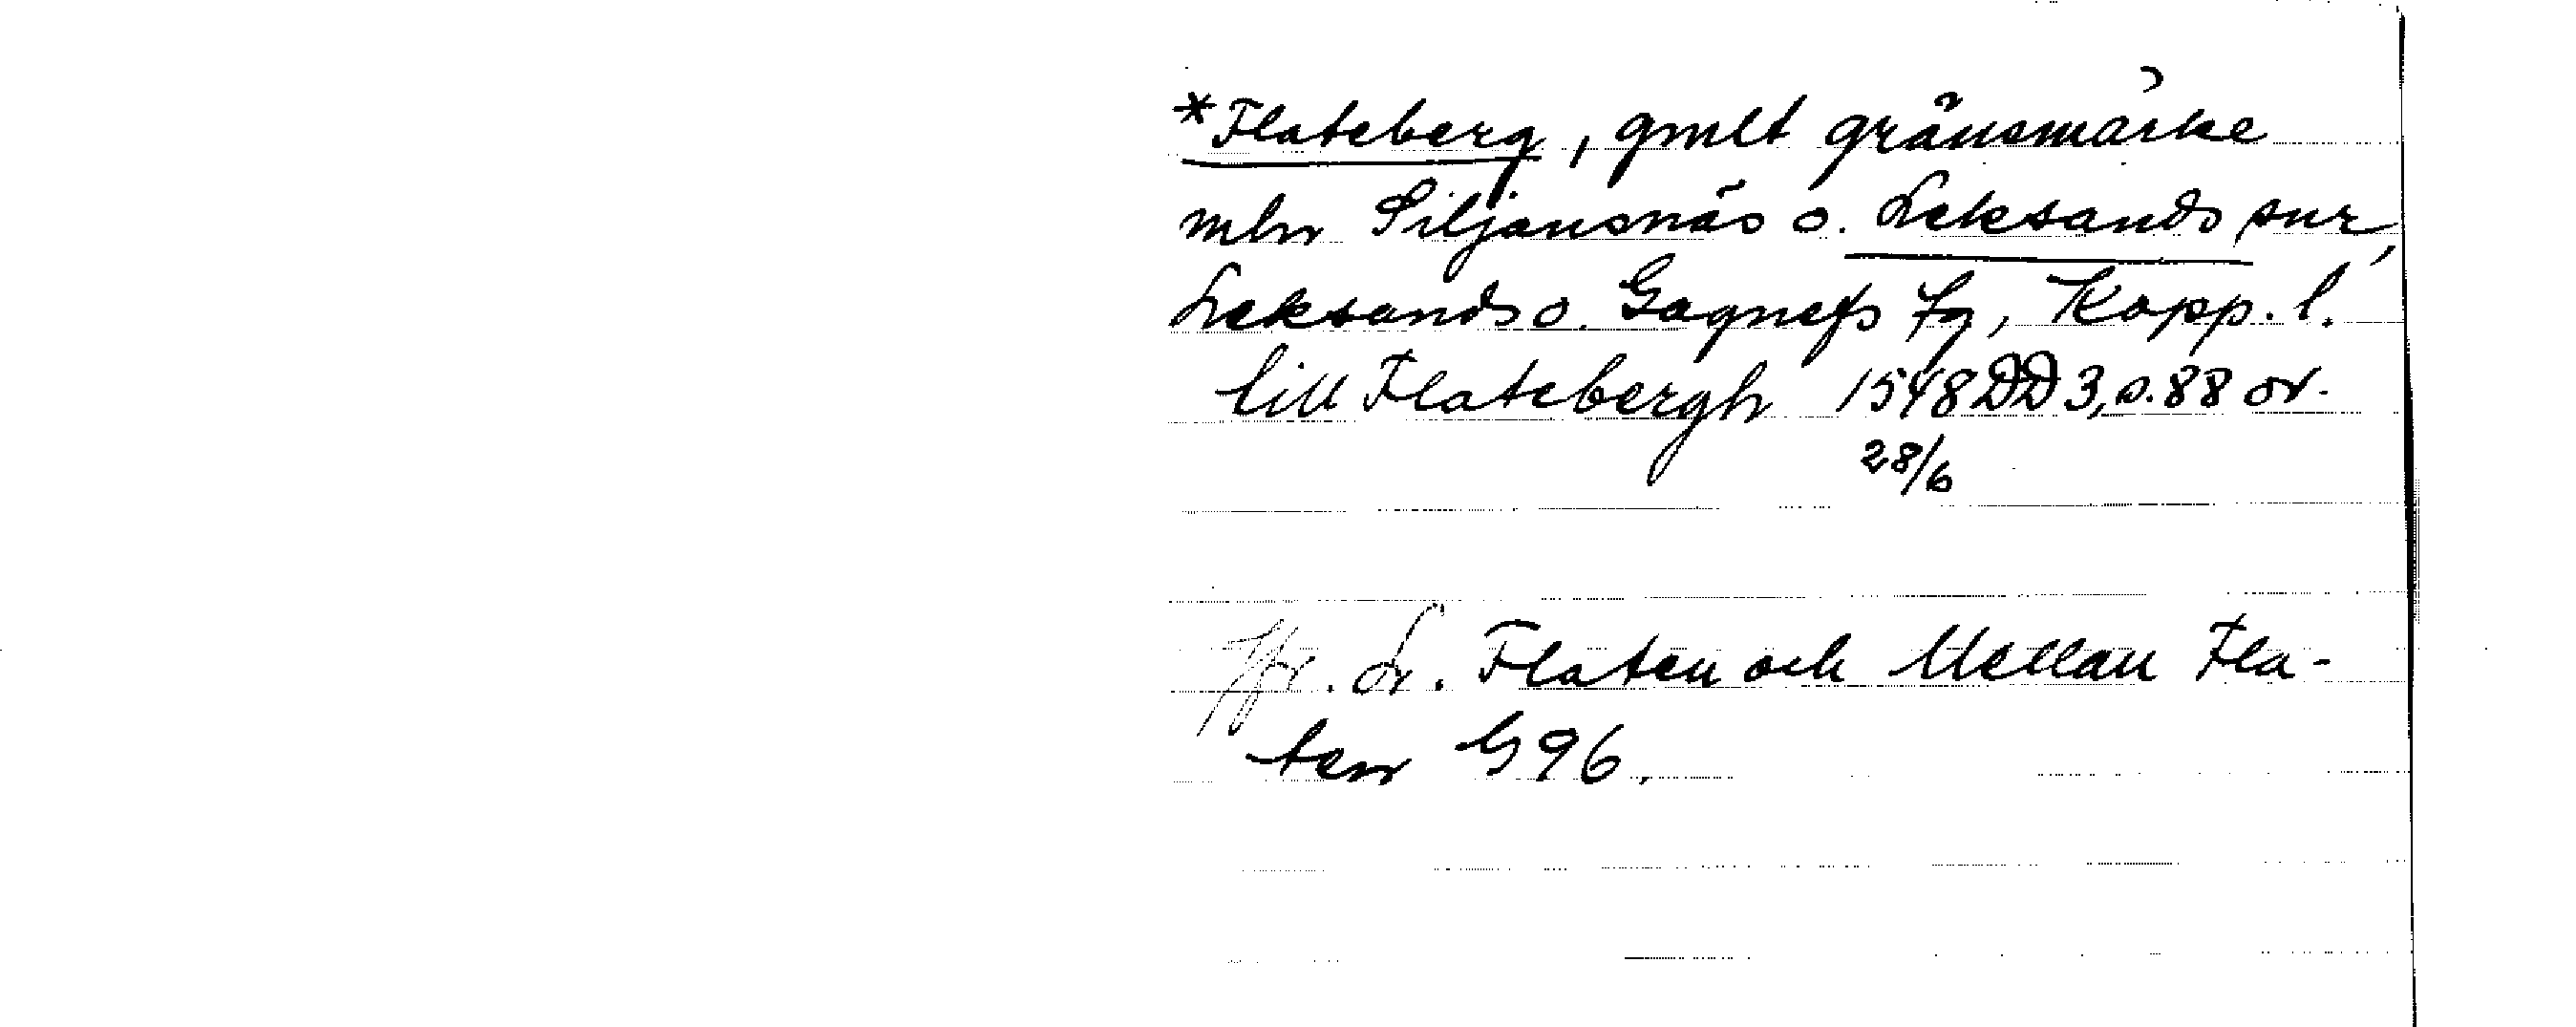 *Flateberg, gmlt gränsmärke
mln Siljansnäs o. Leksands snr,
Leksands o. Gagnefs tg, Kopp. l.
till Flatebergh 1548 DD 3, s. 88 or.
28/6
Jfr. L. Flaten och Mellan Fla-
ten G 96.